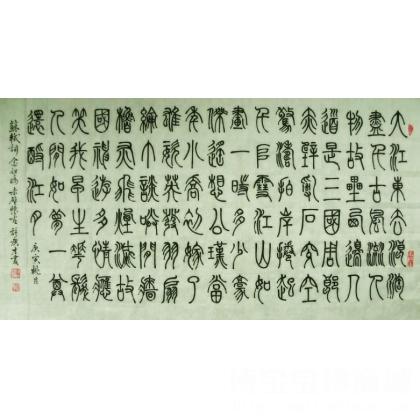 大江東去浪淘
盡千古風流人
物故壘西邊人
道是三國周郎
赤壁亂石穿空
驚濤拍岸捲起
千堆雪江山如
畫一時多少豪
傑遙想公瑾當
年小喬初嫁了
雄姿英發羽扇
綸巾談笑間檣
櫓灰飛煙滅故
國神遊多情應
笑我早生華髮
人間如夢一尊
還酹江月
庚寅
蘇軾詞念奴嬌赤壁懷古